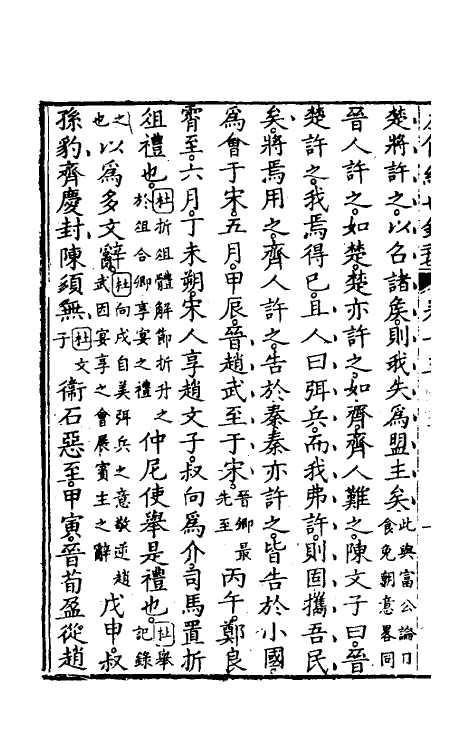 楚將許之以召諸矦則我失為盟主矣此與富公論日食免朝意畧同
晉人許之如楚楚亦許之如齊齊人難之陳文子曰晉
楚許之我焉得已且人曰弭兵而我弗許則固攜吾民
矣將焉用之齊人許之告於秦秦亦許之皆告於小國
為會于宋五月甲辰晉趙武至于宋晉卿最先至丙午鄭良
霄至六月丁未朔宋人享趙文子叔向為介司馬置折
俎禮也杜折俎體解節折升之於俎合卿享宴之禮仲尼使舉是禮也杜舉記錄
之以為多文辭杜向戌自美弭兵之意敬逆趙武因宴享之會展賓主之辭也戊申叔
孫豹齊慶封陳須無杜文子衛石惡至甲寅晉荀盈從趙